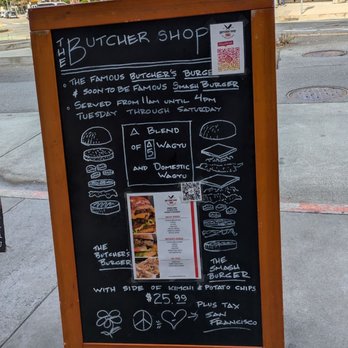 THE BUTCHER SHOP
• THE FAMOUS BUTCHER'S BURGER
& SOON TO BE FAMOUS SMASH BURGER
• SERVED FROM 11AM UNTIL 4PM
TUESDAY THROUGH SATURDAY
A BLEND
OF A5 WAGYU
AND DOMESTIC
WAGYU
THE
BUTCHER'S
BURGER
THE
SMASH
BURGER
WITH SIDE OF KIMCHI & POTATO CHIPS
$25.99
PLUS TAX
SAN
FRANCISCO